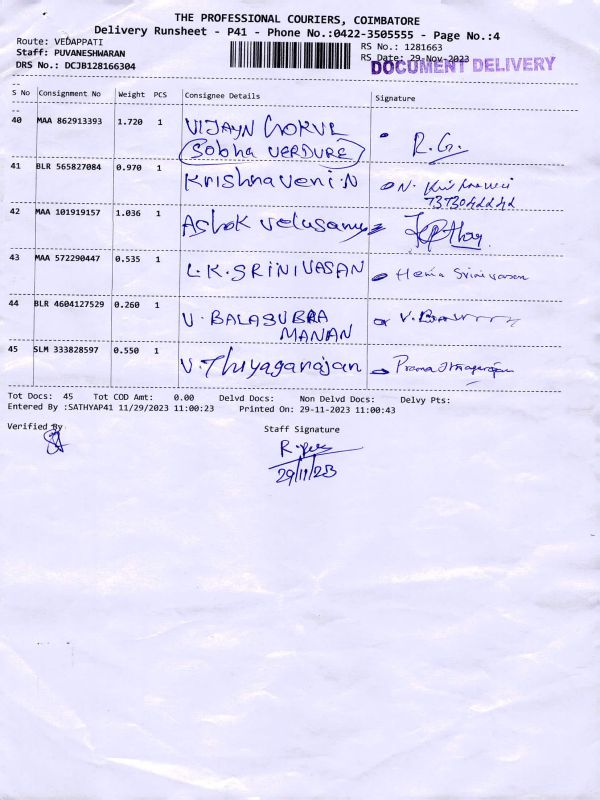 THE PROFESSIONAL COURIERS, COIMBATORE
Delivery Runsheet - P41 - Phone No.:0422-3505555 - Page No.:4
Route: VEDAPPATI RS No.: 1281663
Staff: PUVANESHWARAN RS Date: 29-Nov-2023
DRS No.: DCJB128166304 DOCUMENT DELIVERY
S No Consignment No Weight PCS Consignee Details Signature
40 MAA 862913393 1.720 1 VIJAYN GOKUL
Sobha VERDURE R.G.
41 BLR 565827084 0.970 1 Krishnaveni.N N.
42 MAA 101919157 1.036 1 Ashok Velusamy
43 MAA 572290447 0.535 1 L.K.SRINIVASAN Hema Srinivasan
44 BLR 4604127529 0.260 1 V. BALASUBRA
MANAN V.
45 SLM 333828597 0.550 1 V.Thiyagarajan
Tot Docs: 45 Tot COD Amt: 0.00 Delvd Docs: Non Delvd Docs: Delvy Pts:
Entered By :SATHYAP41 11/29/2023 11:00:23 Printed On: 29-11-2023 11:00:43
Verified By Staff Signature
29/11/23